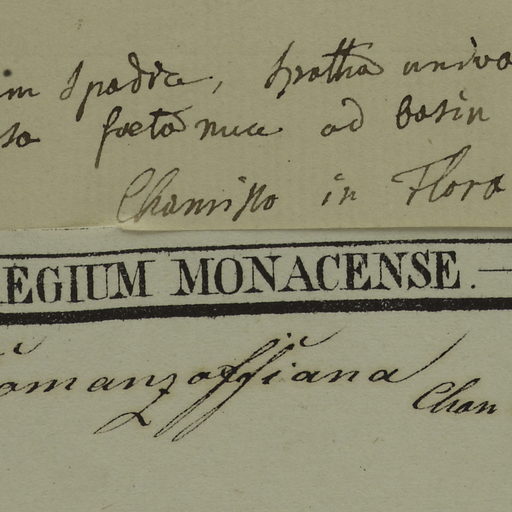 m Spadice, Spatha univa
sa foeta nuce ad basin
Chamisso in Flora
EGIUM MONACENSE.
omanzoffiana
Cham